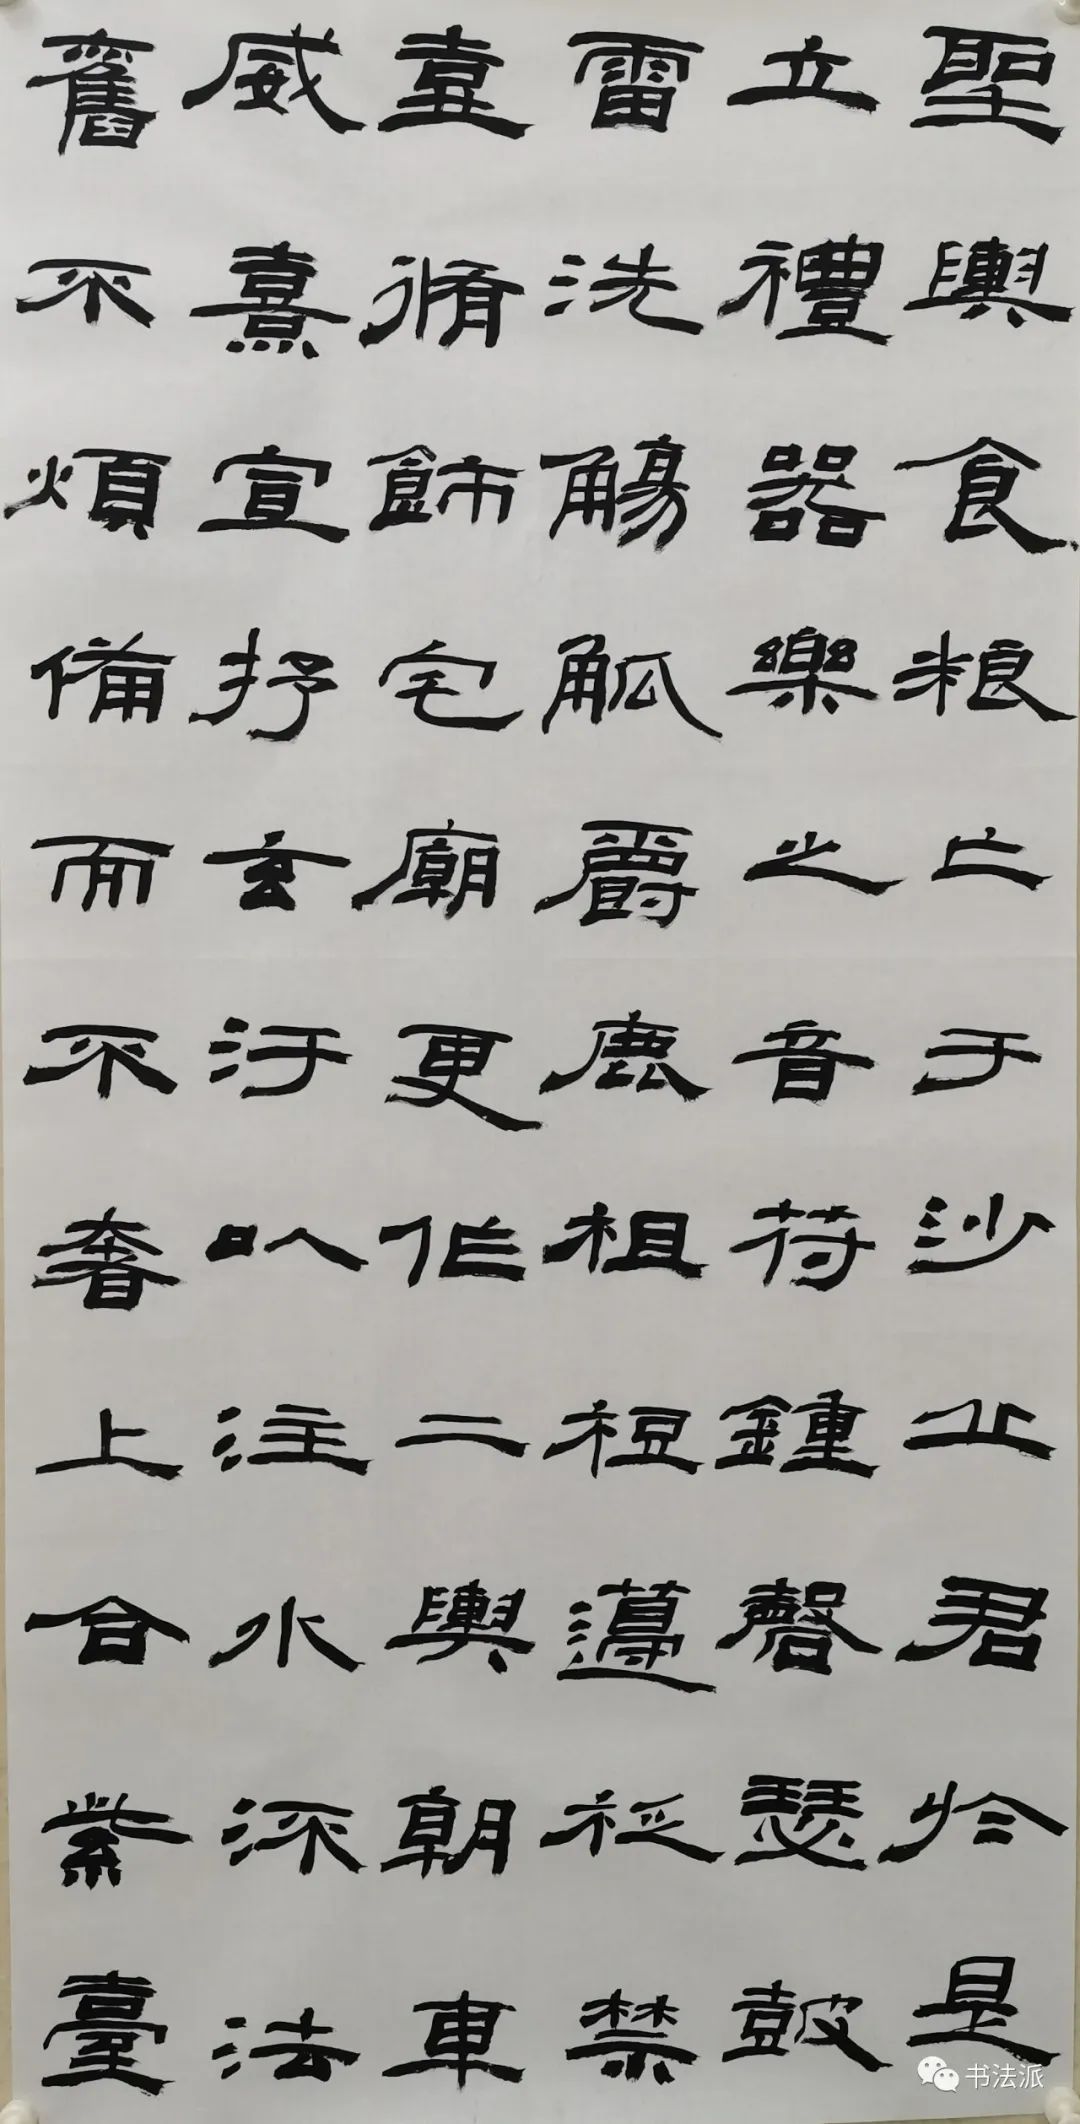 聖輿食粮亡于沙丘君於是
立禮器樂之音符鍾磬瑟鼓
雷洗觴觚爵鹿柤梪籩柉禁
壺脩飾宅廟更作二輿朝車
威熹宣抒玄汙以注水流法
舊不煩備而不奢上合紫臺
书法派